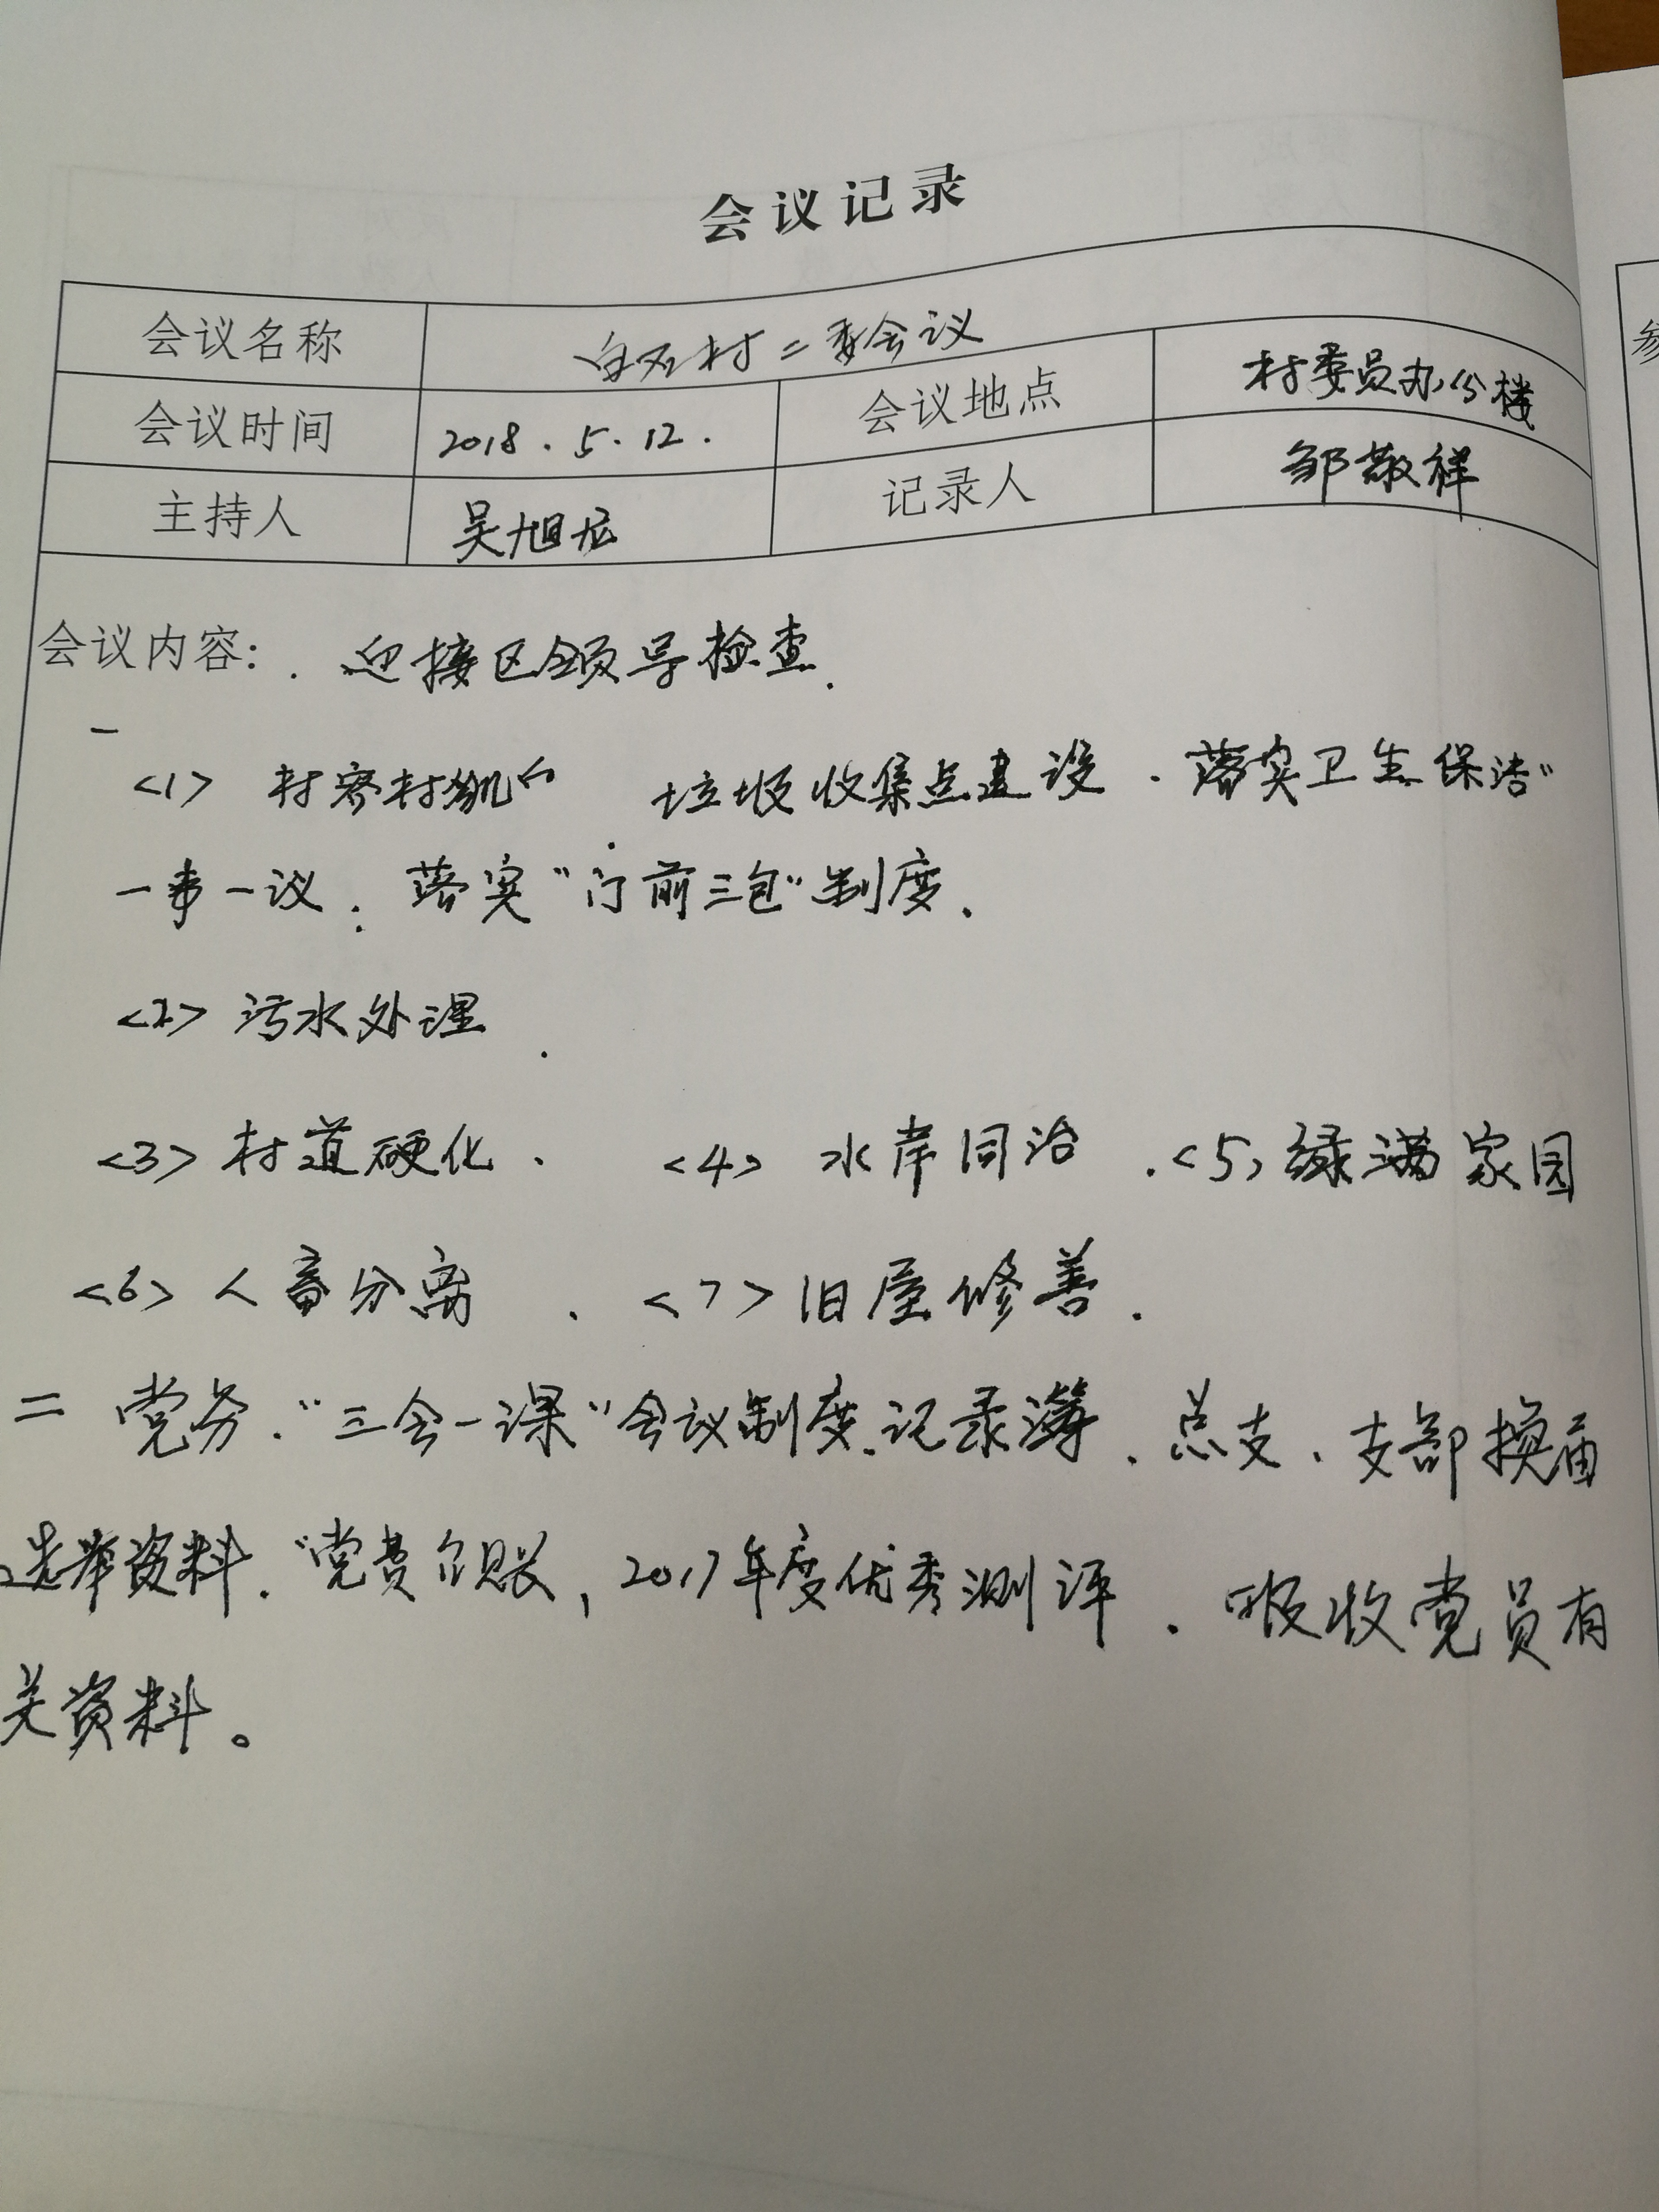 会议记录
会议名称 白石村二委会议
会议时间 2018.5.12. 会议地点 村委员办公楼
主持人 吴旭 记录人 邹敬祥
会议内容: . 迎接区领导检查.
一
<1> 村容村貌 垃圾收集点建设.落实卫生保洁"
一事一议.落实"门前三包"制度.
<2> 污水处理.
<3> 村道硬化. <4> 水岸同治 .<5>绿满家园
<6> 人畜分离 . <7>旧屋修善.
二 党务."三会一课"会议制度.记录簿.总支.支部换届
选举资料."党费台账,2017年度优秀测评.吸收党员有
关资料。
参